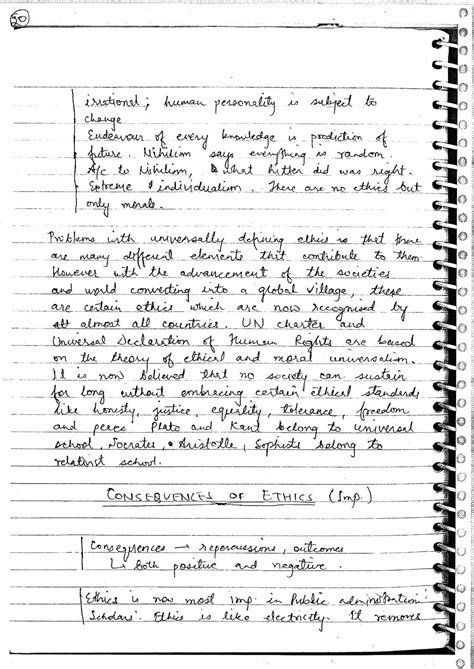 50
irrational; human personality is subject to
change
Endeavour of every knowledge is prediction of
future. Nihilism says everything is random.
A/c to Nihilism, what hitler did was right.
Extreme individualism. There are no ethics but
only morals.
Problems with universally defining ethics is that there
are many different elements that contribute to them.
However with the advancement of the societies
and world converting into a global village, there
are certain ethics which are now recognised by
almost all countries. UN charter and
Universal Declaration of Human Rights are based
on the theory of ethical and moral universalism.
It is now believed that no society can sustain
for long without embracing certain ethical standards
like honesty, justice, equality, tolerance, freedom
and peace. Plato and Kant belong to universal
school, Socrates, Aristotle, Sophists belong to
relativist school.
CONSEQUENCES OF ETHICS (Imp.)
Consequences → repercussions, outcomes
↳ both positive and negative.
Ethics is now most imp. in Public administration
Scholars. Ethics is like electricity. It removes